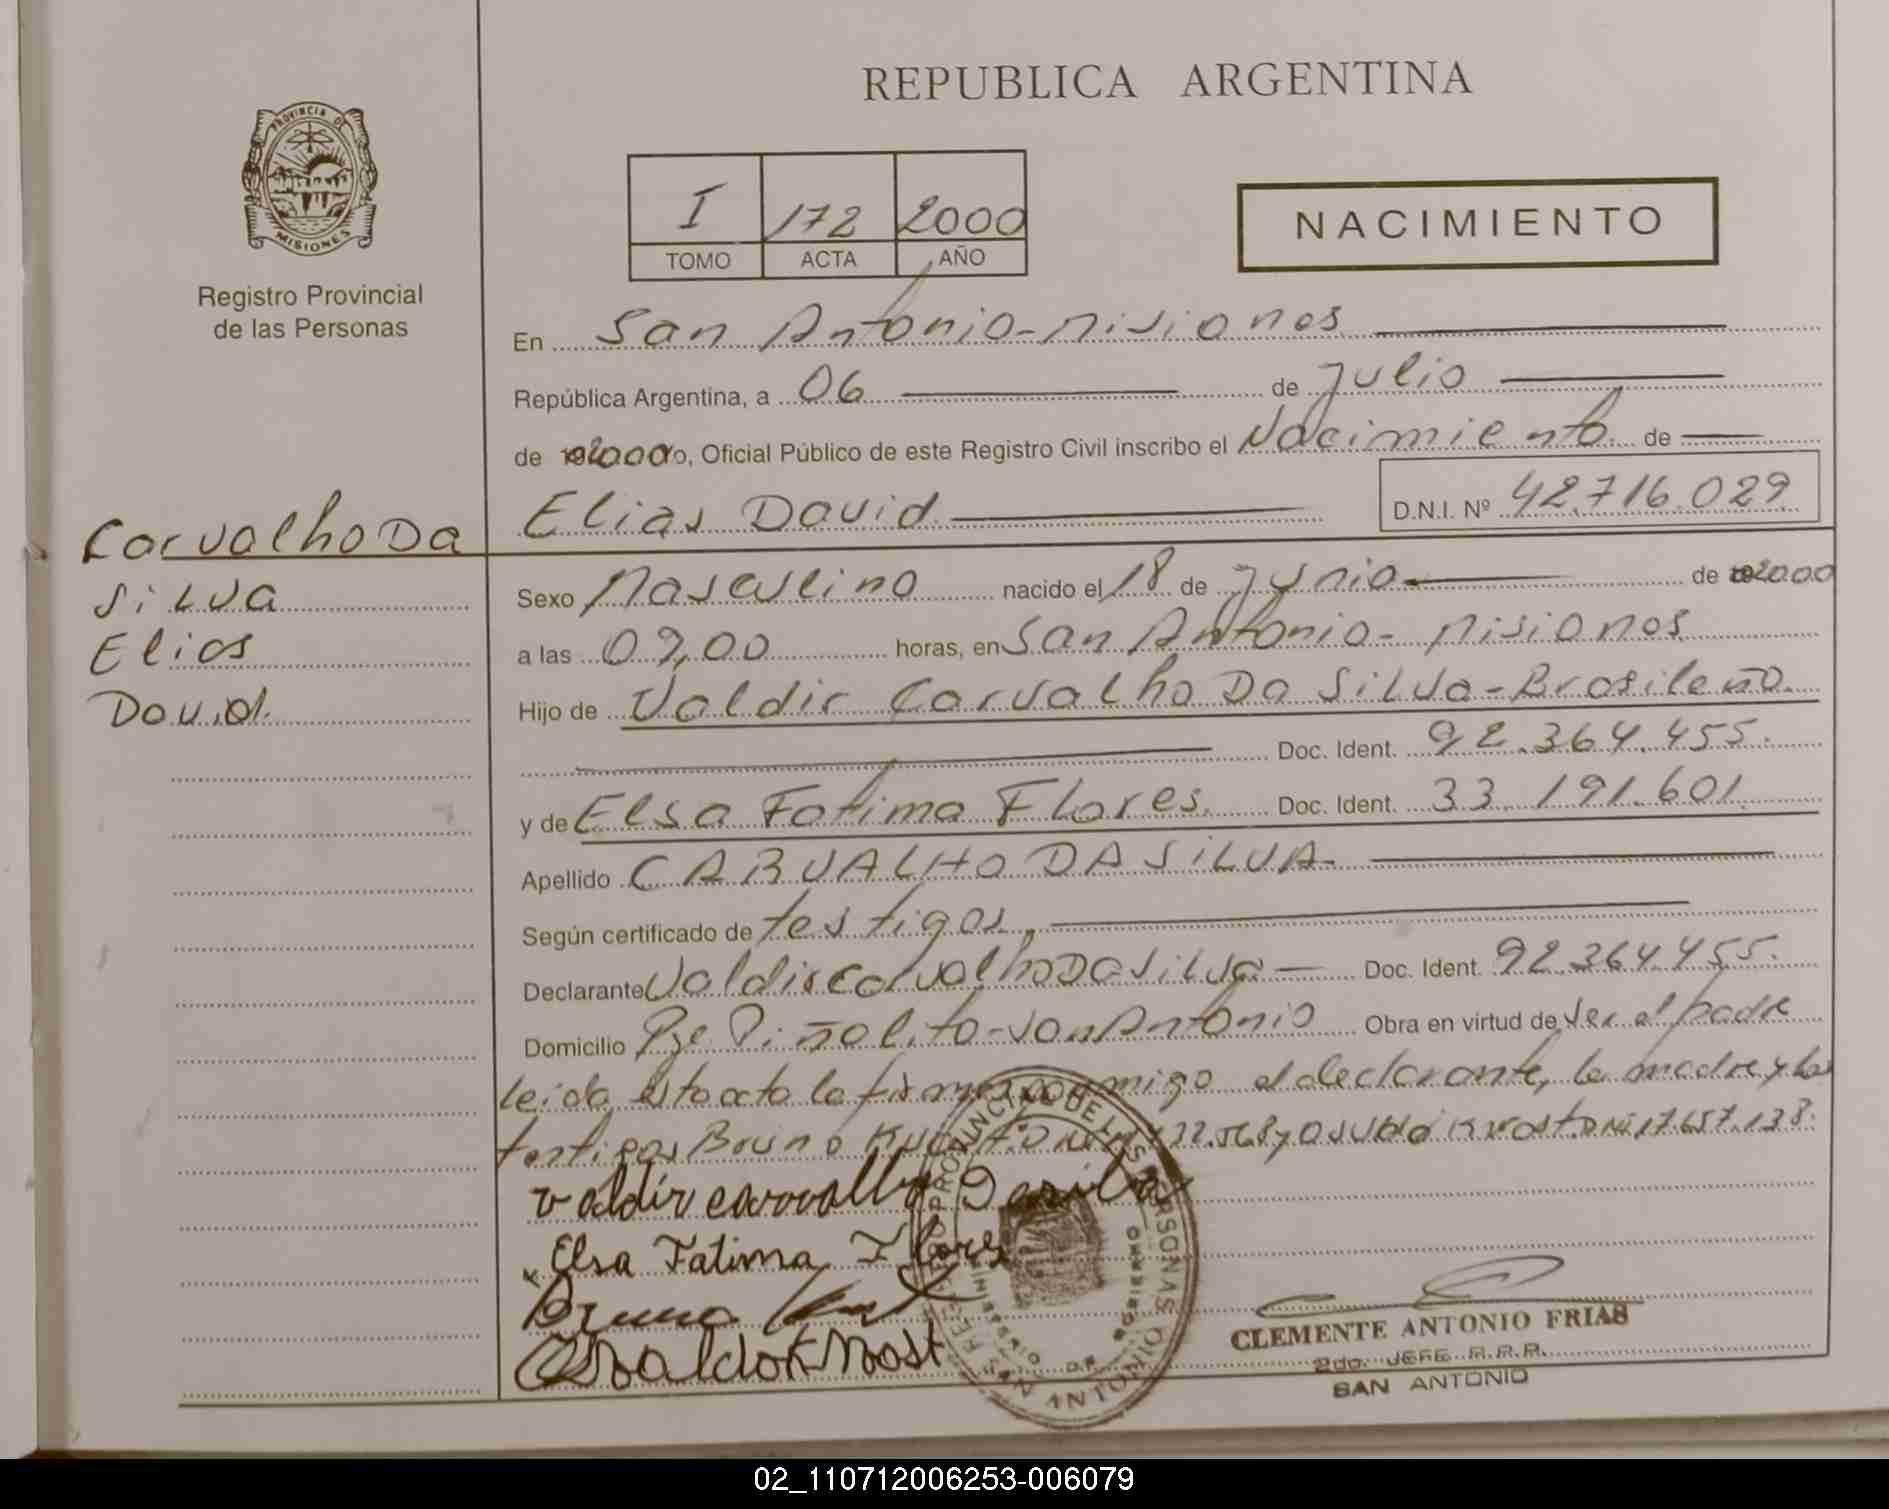 REPUBLICA ARGENTINA
PROVINCIA DE MISIONES
Registro Provincial
de las Personas
I 172 2000
TOMO ACTA AÑO
NACIMIENTO
En San Antonio - Misiones
República Argentina, a 06 de Julio
de 2000 yo, Oficial Público de este Registro Civil inscribo el Nacimiento de
Elias David D.N.I. Nº 42.716.029
Carvalho Da
Silva
Elias
David.
Sexo Masculino nacido el 18 de Junio de 2000
a las 09,00 horas, en San Antonio - Misiones
Hijo de Valdir Carvalho Da Silva - Brasileño.
Doc. Ident. 92.364.455.
y de Elsa Fatima Flores. Doc. Ident. 33.191.601.
Apellido CARVALHO DA SILVA.
Según certificado de testigos.
Declarante Valdir Carvalho Da Silva Doc. Ident. 92.364.455.
Domicilio Pje Piñalito - San Antonio Obra en virtud de ser el padre
leida esta acta la firman conmigo el declarante, la madre y los
testigos Bruno 22.568 y Osvaldo Knost DNI 17.657.138.
valdir carvalho Dasilva
Elsa Fatima Flores
Bruno
Osvaldo Knost
PROVINCIAL DE LAS PERSONAS
MINISTERIO DE GOBIERNO
SAN ANTONIO
CLEMENTE ANTONIO FRIAS
2do. JEFE R.P.P.
SAN ANTONIO
02_110712006253-006079